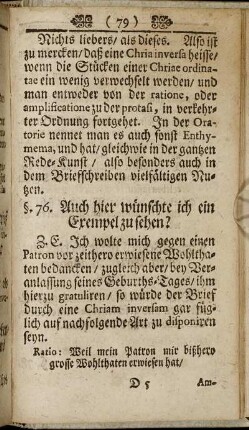 ( 79 )
Nichts liebers/ als dieses. Also ist
zu mercken/ daß eine Chria inversa heisse/
wenn die Stücken einer Chriae ordina-
tae ein wenig verwechselt werden/ und
man entweder von der ratione, oder
amplificatione zu der protasi, in verkehr-
ter Ordnung fortgehet. In der Ora-
torie nennet man es auch sonst Enthy-
mema, und hat/ gleichwie in der gantzen
Rede-Kunst/ also besonders auch in
dem Briefschreiben vielfältigen Nu-
tzen.
§. 76. Auch hier wünschte ich ein
Exempel zu sehen?
Z. E. Ich wolte mich gegen einen
Patron vor zeithero erwiesene Wohltha-
ten bedancken/ zugleich aber/ bey Ver-
anlassung seines Geburths-Tages/ ihm
hierzu gratuliren/ so würde der Brief
durch eine Chriam inversam gar füg-
lich auf nachfolgende Art zu disponiren
seyn.
Ratio: Weil mein Patron mir bißhero
grosse Wohlthaten erwiesen hat/
D 5 Am-